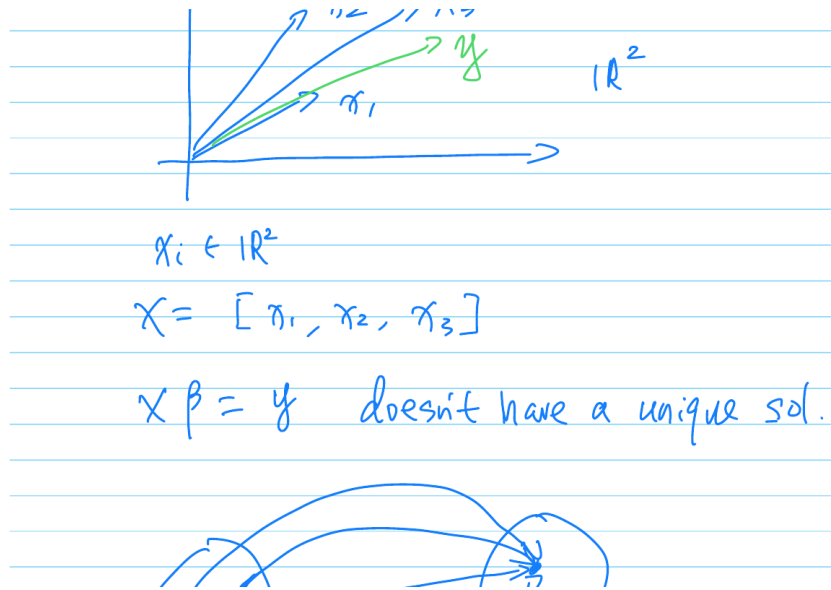 y
x₁
ℝ²
xᵢ ∈ ℝ²
X = [x₁, x₂, x₃]
Xβ = y doesn't have a unique sol.